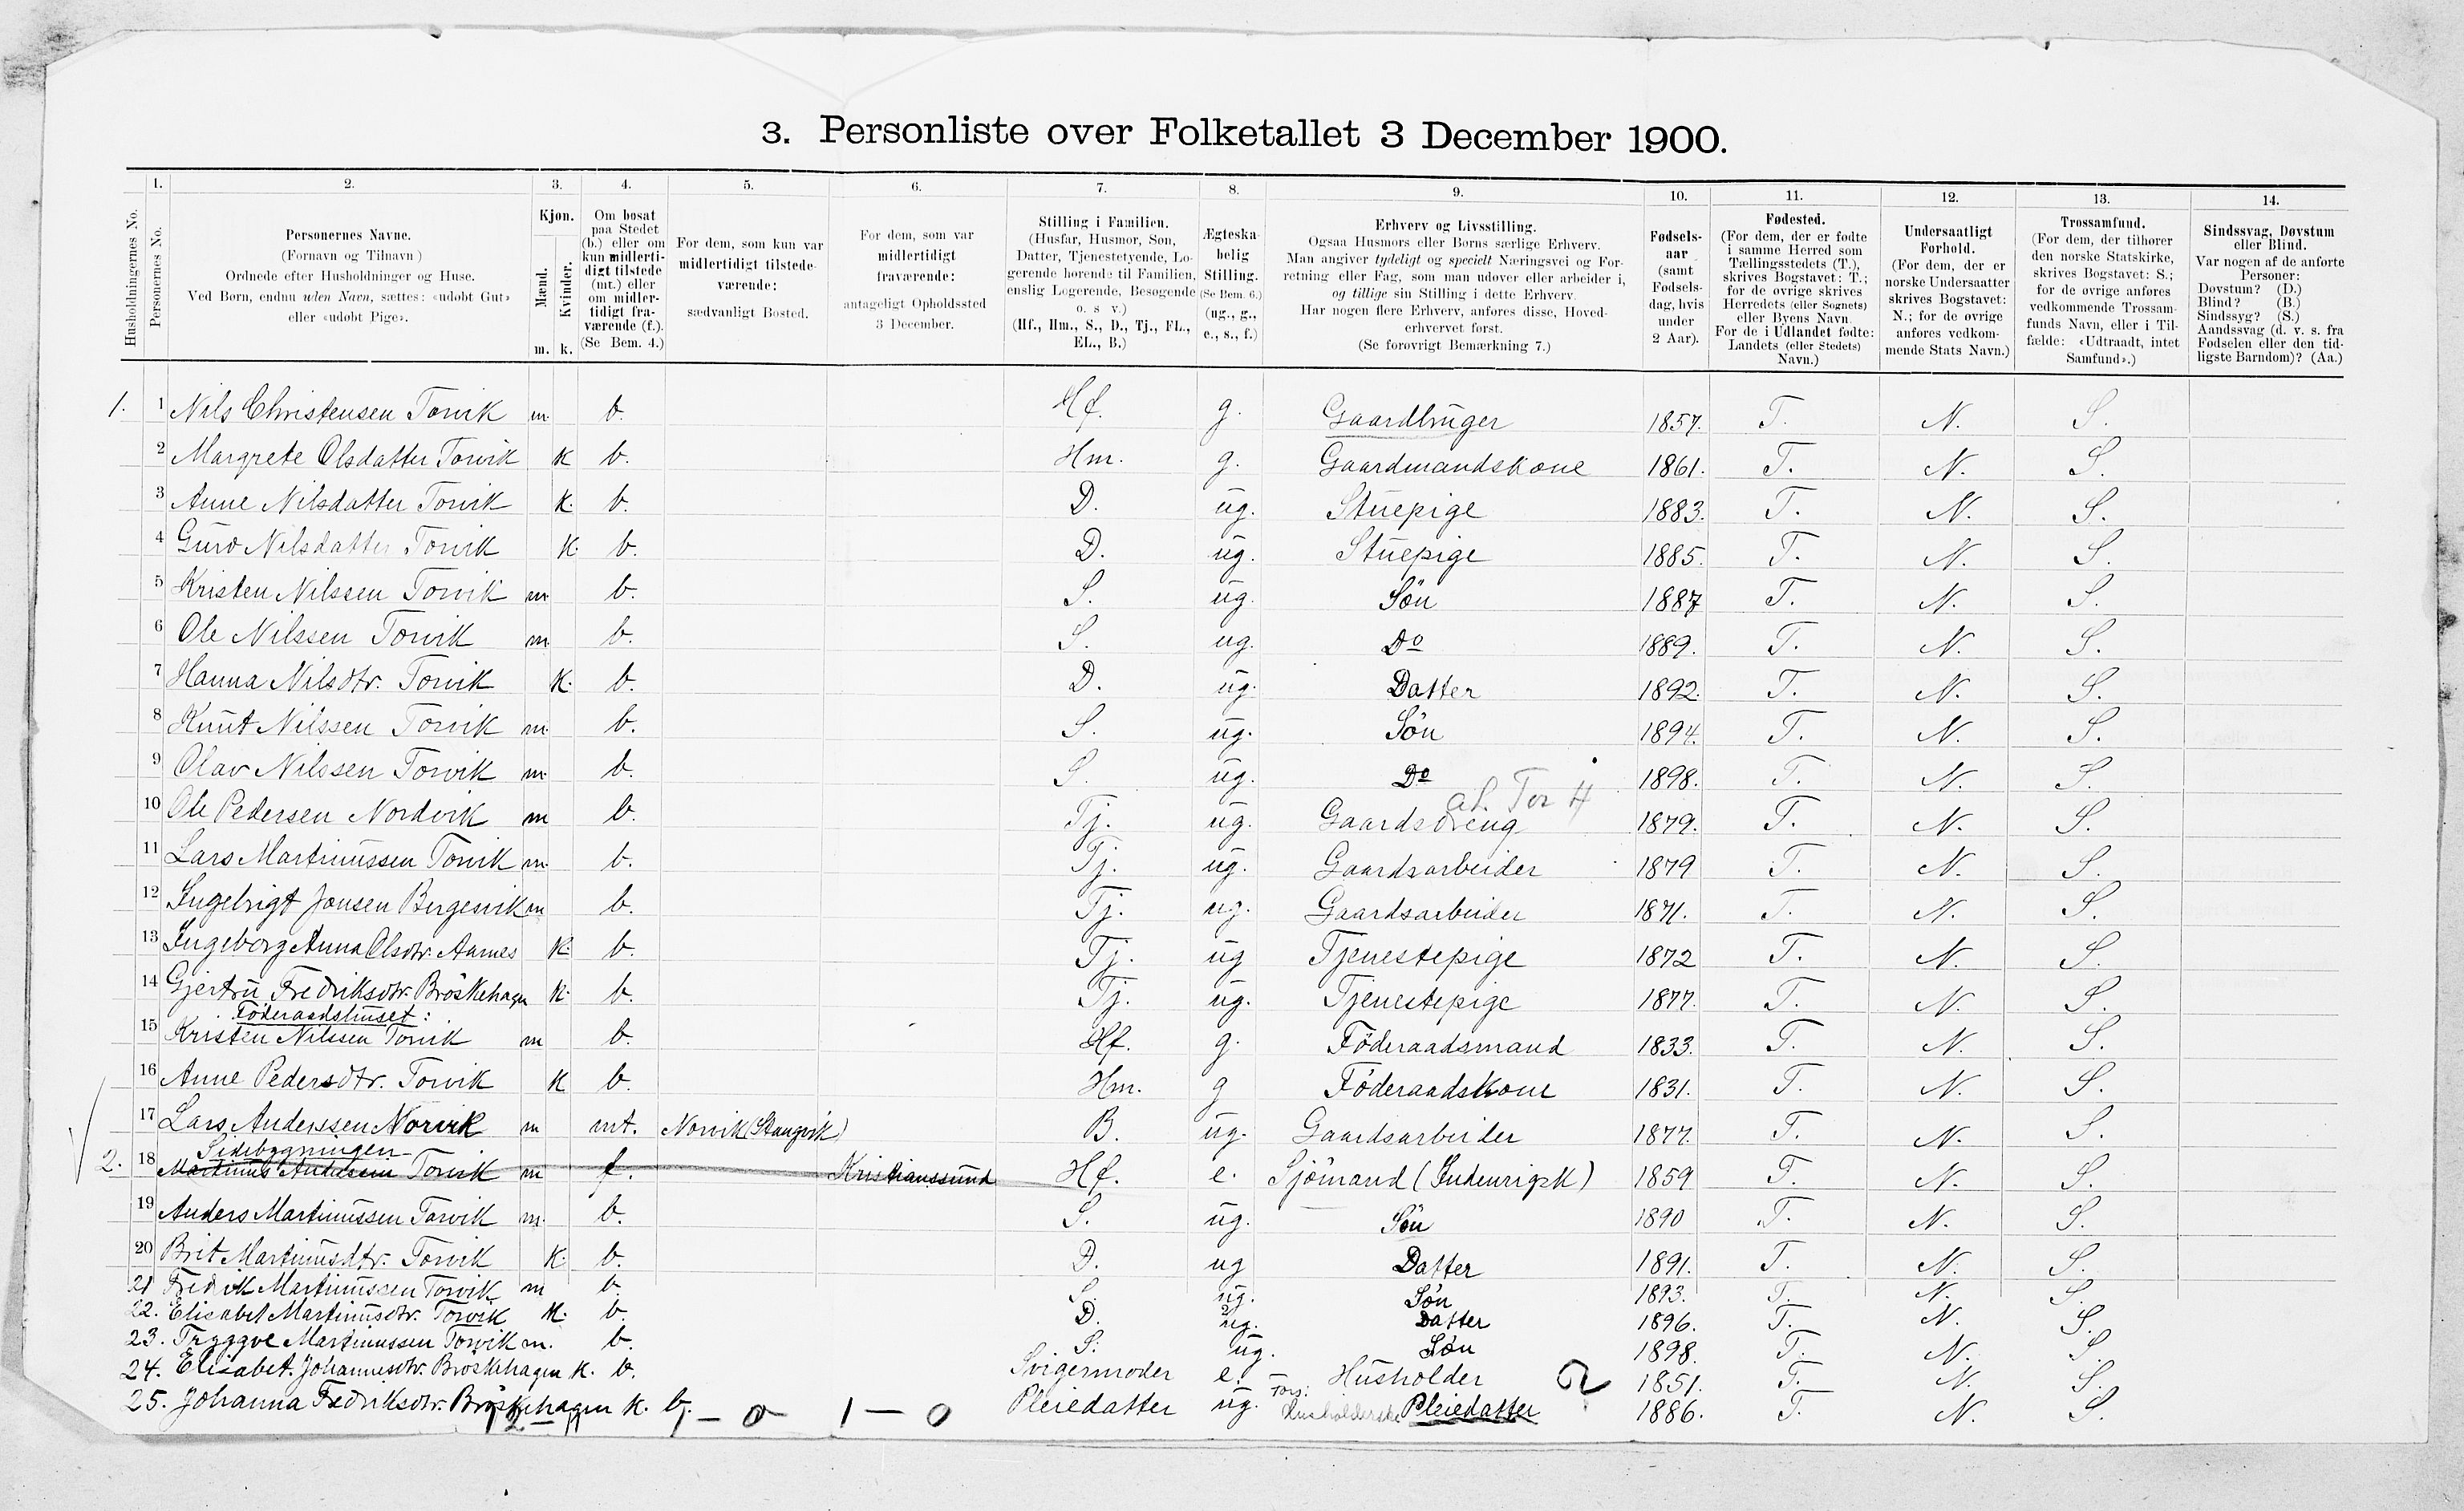 3. Personliste over Folketallet 3 December 1900.
1. 2. 3. 4. 5. 6. 7. 8. 9. 10. 11. 12. 13. 14.
Husholdningernes No.
Personernes No.
Personernes Navne.
(Fornavn og Tilnavn)
Ordnede efter Husholdninger og Huse.
Ved Børn, endnu uden Navn, sættes: «udøbt Gut»
eller «udøbt Pige».
Kjøn.
Mænd.
Kvinder.
m. k.
Om bosat
paa Stedet
(b.) eller om
kun midlerti-
digt tilstede
(mt.) eller
om midler-
tidigt fra-
værende (f.).
(Se Bem. 4.)
For dem, som kun var
midlertidigt tilstede-
værende:
sædvanligt Bosted.
For dem, som var
midlertidigt
fraværende:
antageligt Opholdssted
3 December.
Stilling i Familien.
(Husfar, Husmor, Søn,
Datter, Tjenestetyende, Lo-
gerende hørende til Familien,
enslig Logerende, Besøgende
o. s v.)
(Hf., Hm., S., D., Tj., FL.,
EL., B.)
Ægteska-
belig
Stilling.
(Se Bem. 6.)
(ug., g.,
e., s., f.)
Erhverv og Livsstilling.
Ogsaa Husmors eller Børns særlige Erhverv.
Man angiver tydeligt og specielt Næringsvei og For-
retning eller Fag, som man udøver eller arbeider i,
og tillige sin Stilling i dette Erhverv.
Har nogen flere Erhverv, anføres disse, Hoved-
erhvervet først.
(Se forøvrigt Bemærkning 7.)
Fødsels-
aar
(samt
Fødsels-
dag, hvis
under
2 Aar).
Fødested.
(For dem, der er fødte
i samme Herred som
Tællingsstedets (T.),
skrives Bogstavet: T.;
for de øvrige skrives
Herredets (eller Sognets)
eller Byens Navn.
For de i Udlandet fødte:
Landets (eller Stedets)
Navn.)
Undersaatligt
Forhold.
(For dem, der er
norske Undersaatter
skrives Bogstavet:
N.; for de øvrige
anføres vedkom-
mende Stats Navn.)
Trossamfund.
(For dem, der tilhører
den norske Statskirke,
skrives Bogstavet: S.;
for de øvrige anføres
vedkommende Trossam-
funds Navn, eller i Til-
fælde: «Udtraadt, intet
Samfund».)
Sindssvag, Døvstum
eller Blind.
Var nogen af de anførte
Personer:
Døvstum? (D.)
Blind? (B.)
Sindssyg? (S.)
Aandssvag (d. v. s. fra
Fødselen eller den tid-
ligste Barndom)? (Aa.)
1. 1 Nils Christensen Torvik m. b. Hf. g. Gaardbruger 1857. T. N. S.
2 Margrete Olsdatter Torvik K b. Hm. g. Gaardmandskone 1861. T. N. S.
3 Anne Nilsdatter Torvik K. b. D. ug. Stuepige 1883. T. N. S.
4 Guro Nilsdatter Torvik K. b. D. ug. Stuepige 1885. T. N. S.
5 Kristen Nilssen Torvik m. b. S. ug. Søn 1887 T. N. S.
6 Ole Nilssen Torvik m. b. S. ug. Do 1889. T. N. S.
7 Hanna Nilsdtr. Torvik K. b. D. ug. Datter 1892. T. N. S.
8 Knut Nilssen Torvik m. b. S. ug. Søn 1894. T. N. S.
9 Olav Nilssen Torvik m. b. S. ug. Do 1898. T. N. S.
10 Ole Pedersen Nordvik m b. Tj. ug. Gaardsdreng 1879. T. N. S.
11 Lars Martinussen Torvik m. b. Tj. ug. Gaardsarbeider 1879 T. N. S.
12 Ingebrigt Jonsen Bergesvik m b. Tj. ug. Gaardsarbeider 1871. T. N. S.
13 Ingeborg Anna Olsdtr. Aarnes K. b. Tj. ug Tjenestepige 1872 T. N. S.
14 Gjertru Fredriksdtr. Brøskehagen K. b. Tj. ug. Tjenestepige 1877. T. N. S.
Föderaadshuset:
15 Kristen Nilssen Torvik m b. Hf. g. Föderaadsmand 1833. T. N. S.
16 Anne Pedersdtr. Torvik K b. Hm. g Föderaadskone 1831. T. N. S.
17 Lars Anderssen Norvik m mt. Norvik (Stangvik) B. ug. Gaardsarbeider 1877. T. N. S.
Sidebygningen
2. 18 Martinus Anderssen Torvik m f. Kristianssund Hf. e. Sjömand (Indenrigsk) 1859 T. N. S.
19 Anders Martinussen Torvik m. b. S. ug. Søn 1890 T. N. S.
20 Brit Martinusdtr. Torvik K. b. D. ug Datter 1891. T. N. S.
21 Fredrik Martinussen Torvik m b. S. ug. Søn 1893. T. N. S.
22. Elisabet Martinusdtr. Torvik K. b. D. ug. Datter 1896. T. N. S.
23. Tryggve Martinussen Torvik m. b. S. ug. Søn 1898. T. N. S.
24. Elisabet Johannesdtr. Brøskehagen K. b. Svigermoder e. Husholder 1851. T. N. S.
25. Johanna Fredriksdtr. Brøskehagen K. b. Pleiedatter ug. Pleiedatter 1886. T. N. S.
1 – 0 1 – 0